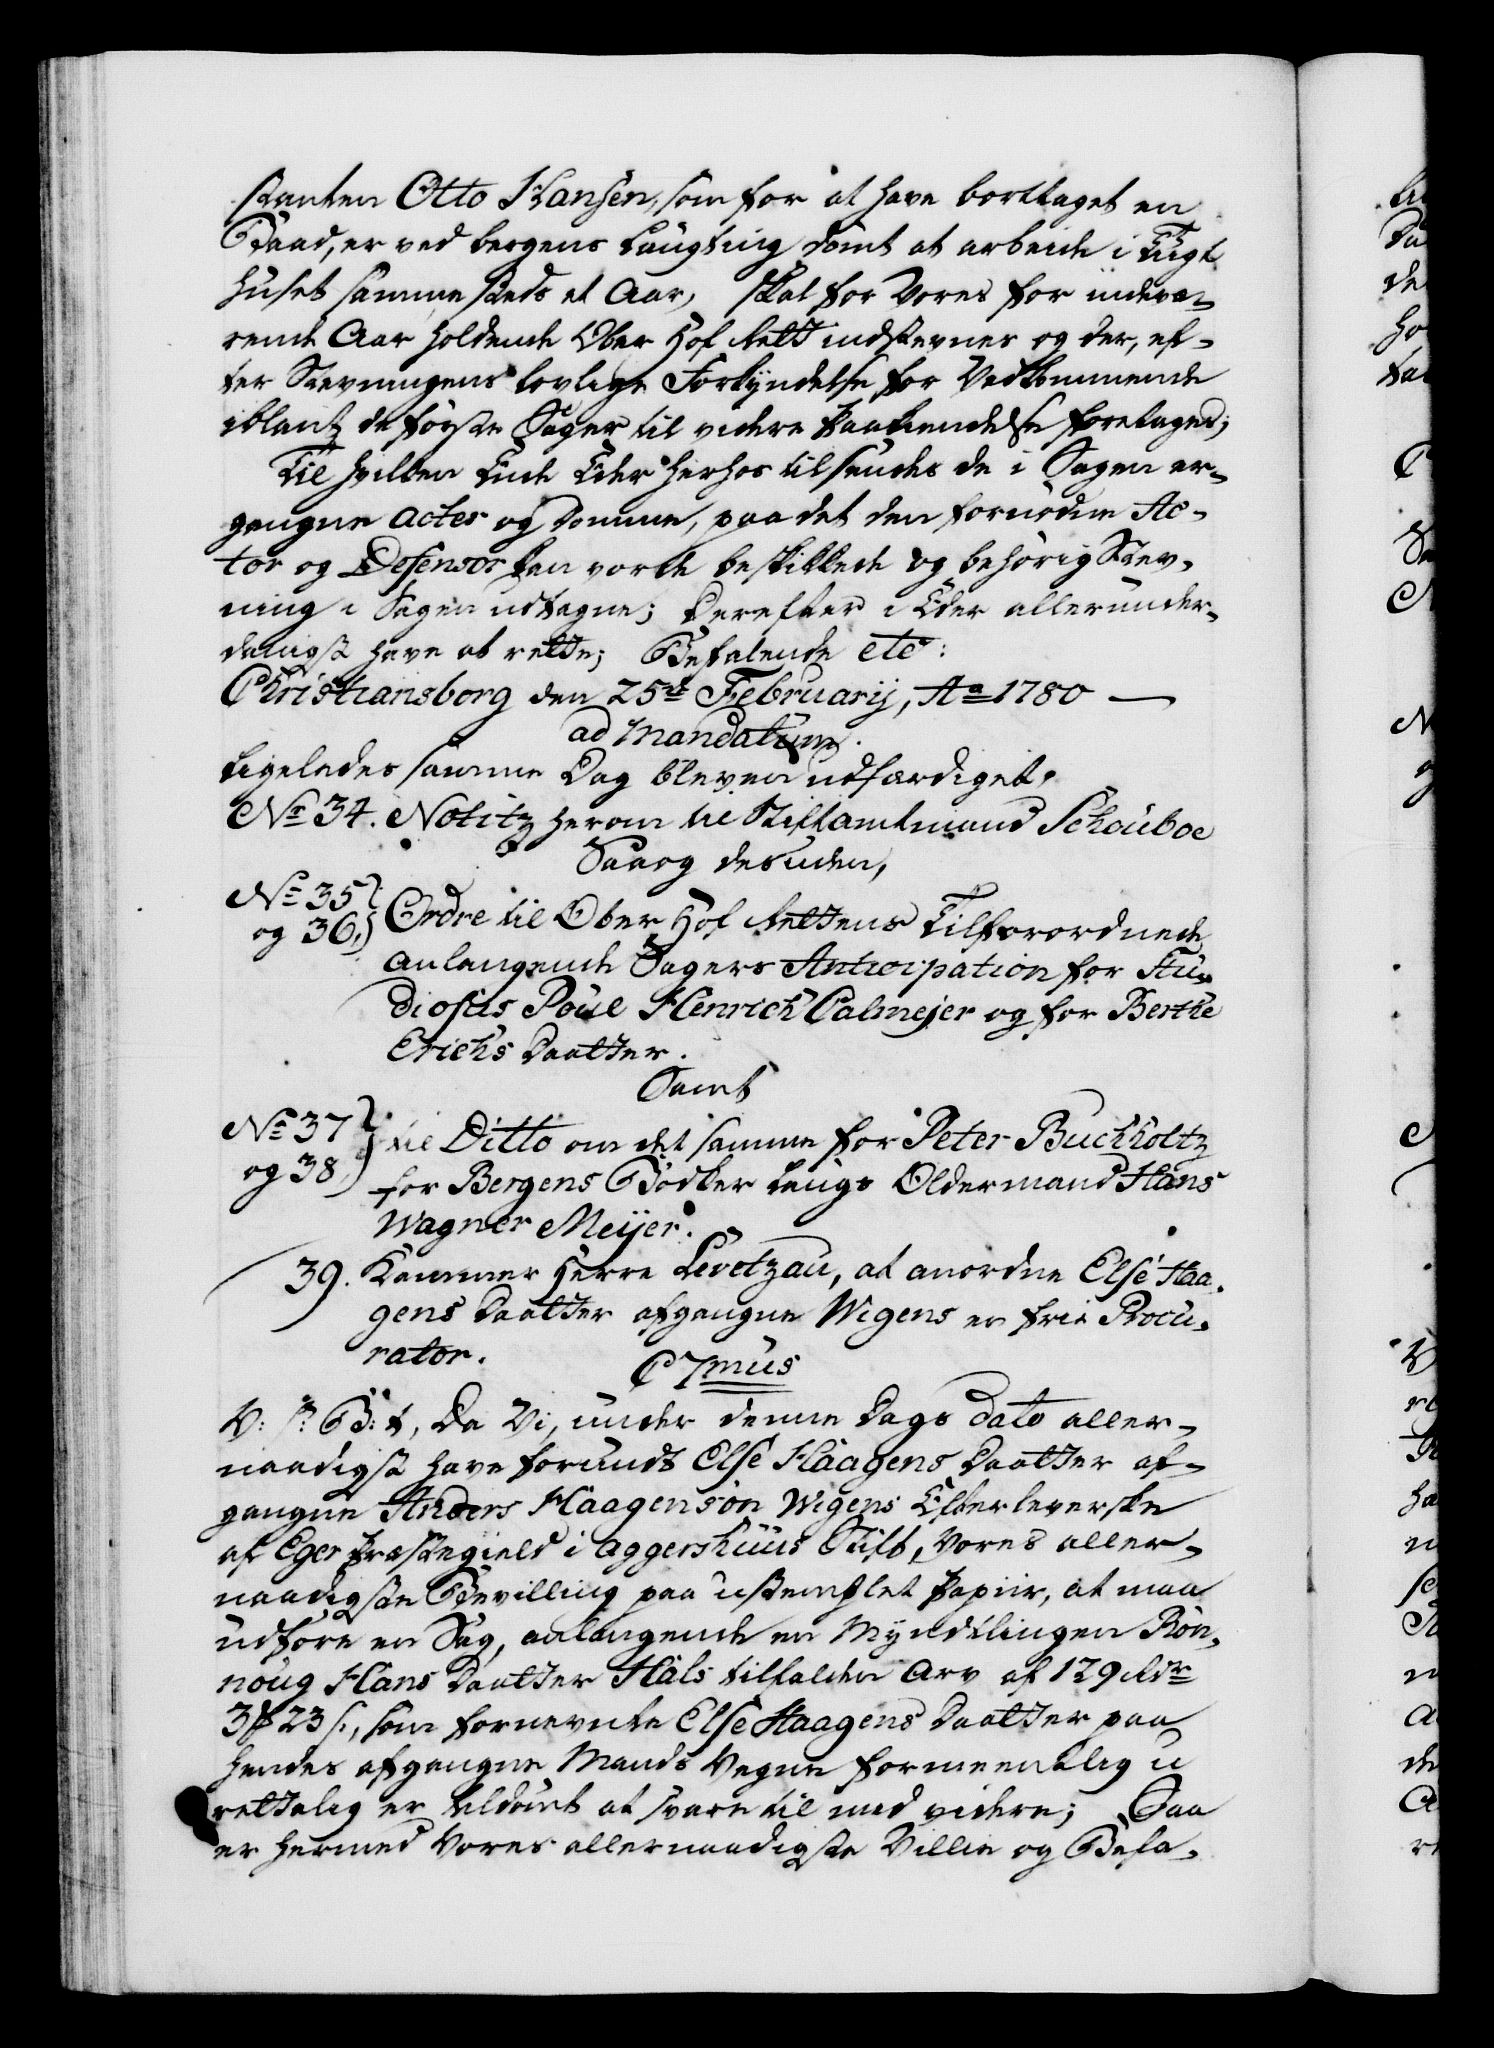 stanten Otto Hansen, som for at have borttaget en
Baad, er ved Bergens Laugting dömt at arbeide i Tugt
huset sammesteds et Aar, skal for Vores for indeva-
rende Aar holdende Ober Hof Rett indstevnes og der, ef-
ter Stevningens lovlige Forkyndelse for Vedkommende
iblant de förste Sager til videre Paakiendelse foretages;
Til hvilken Ende Eder herhos tilsendes de i Sagen er-
gangne Acter og Domme, paa det den fornödne Ac-
tor og Defensor kan vorde beskikkede og behörig Stev-
ning i Sagen udtagne; Derefter i Eder allerunder-
danigst have at rette; Befalende etc:
Christiansborg den 25de Februarij, Ao 1780 —
ad Mandatum.
Ligeledes samme Dag bleven udfærdiget,
No 34. Notitz herom til Stiftamtmand Schouboe
Saa og desuden,
No 35
og 36, Ordre til Ober Hof Rettens Tilforordnede
anlangende Sagers Anticipation for Stu-
diosus Poul Henrich Calmejer og for Berthe
Erichs Daatter.
Samt
No 37
og 38, til Ditto om det samme for Peter Buchholtz
for Bergens Bödker Laugs Oldermand Hans
Wagner Meijer.
39. Kammer Herre Levetzau, at anordne Else Haa-
gens Daatter afgangne Wigens en frie Procu-
rator. C 7mus
V: S: G: t, Da Vi, under denne Dags Dato aller-
naadigst have forundt Else Haagens Daatter af-
gangne Anders Haagensön Wigens Efterleverske
af Eger Præstegield i Aggershuus Stift, Vores aller-
naadigste Bevilling paa ustemplet Papiir, at maa
udföre en Sag, anlangende en Myndtlingen Rön-
noug Hans Daatter Hals tilfalden Arv af 129 Rdr
3 ₰ 23 s., som fornevnte Else Haagens Daatter paa
hendes afgangne Mands Vegne formeentlig u
rettelig er tildömt at svare til med videre; Saa
er hermed Vores allernaadigste Villie og Befa-